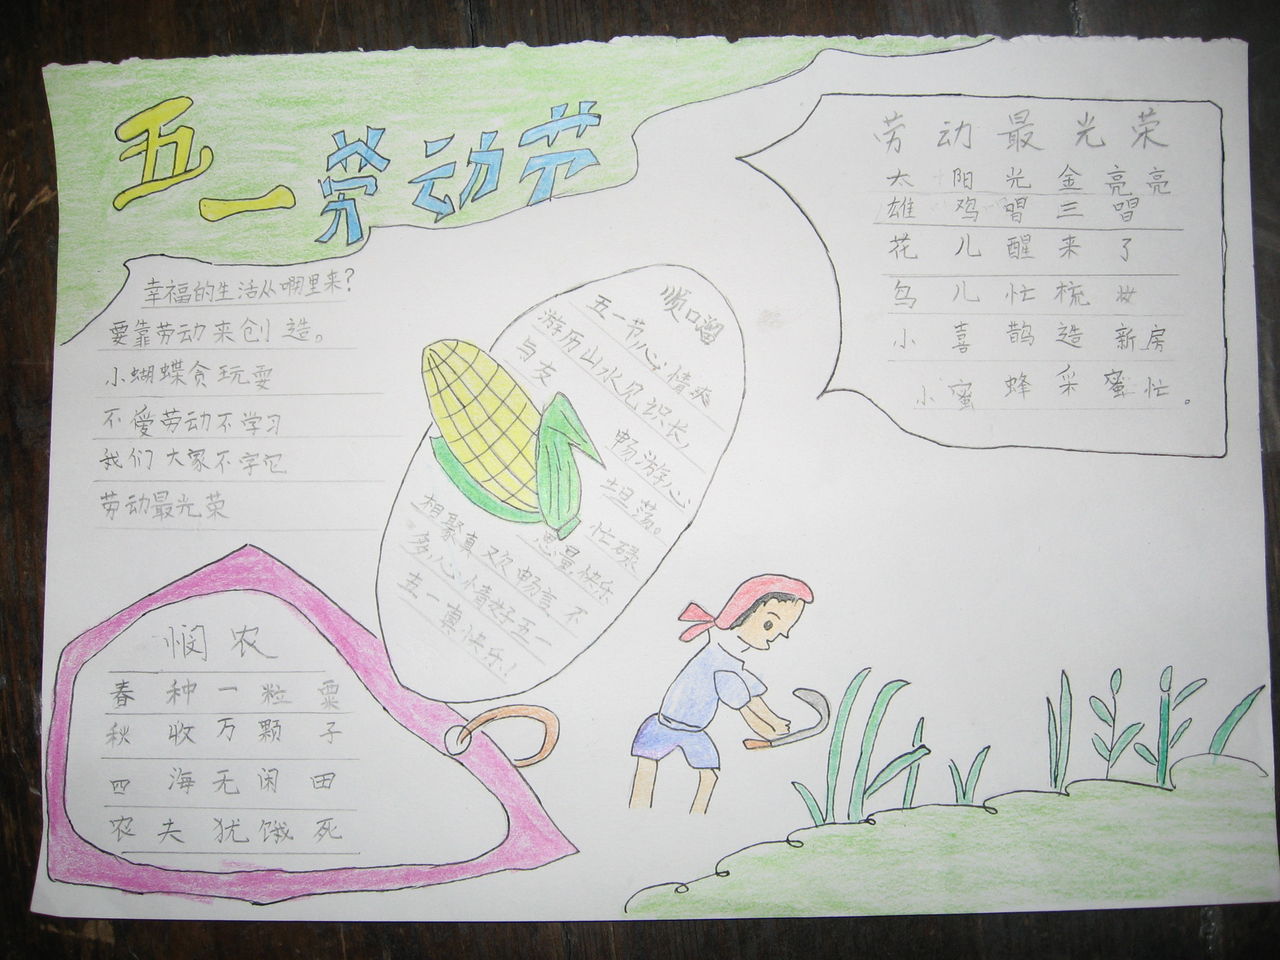 五一劳动节
幸福的生活从哪里来?
要靠劳动来创造。
小蝴蝶贪玩耍
不爱劳动不学习
我们大家不学它
劳动最光荣
顺口溜
五一节,心情爽
游历山水见识长,
与友
畅游心
坦荡。
忙碌
思量,快乐
相聚真欢畅言不
多心情好五一
五一真快乐!
劳动最光荣
太阳光金亮亮
雄鸡唱三唱
花儿醒来了
鸟儿忙梳妆
小喜鹊造新房
小蜜蜂采蜜忙。
悯农
春种一粒粟
秋收万颗子
四海无闲田
农夫犹饿死